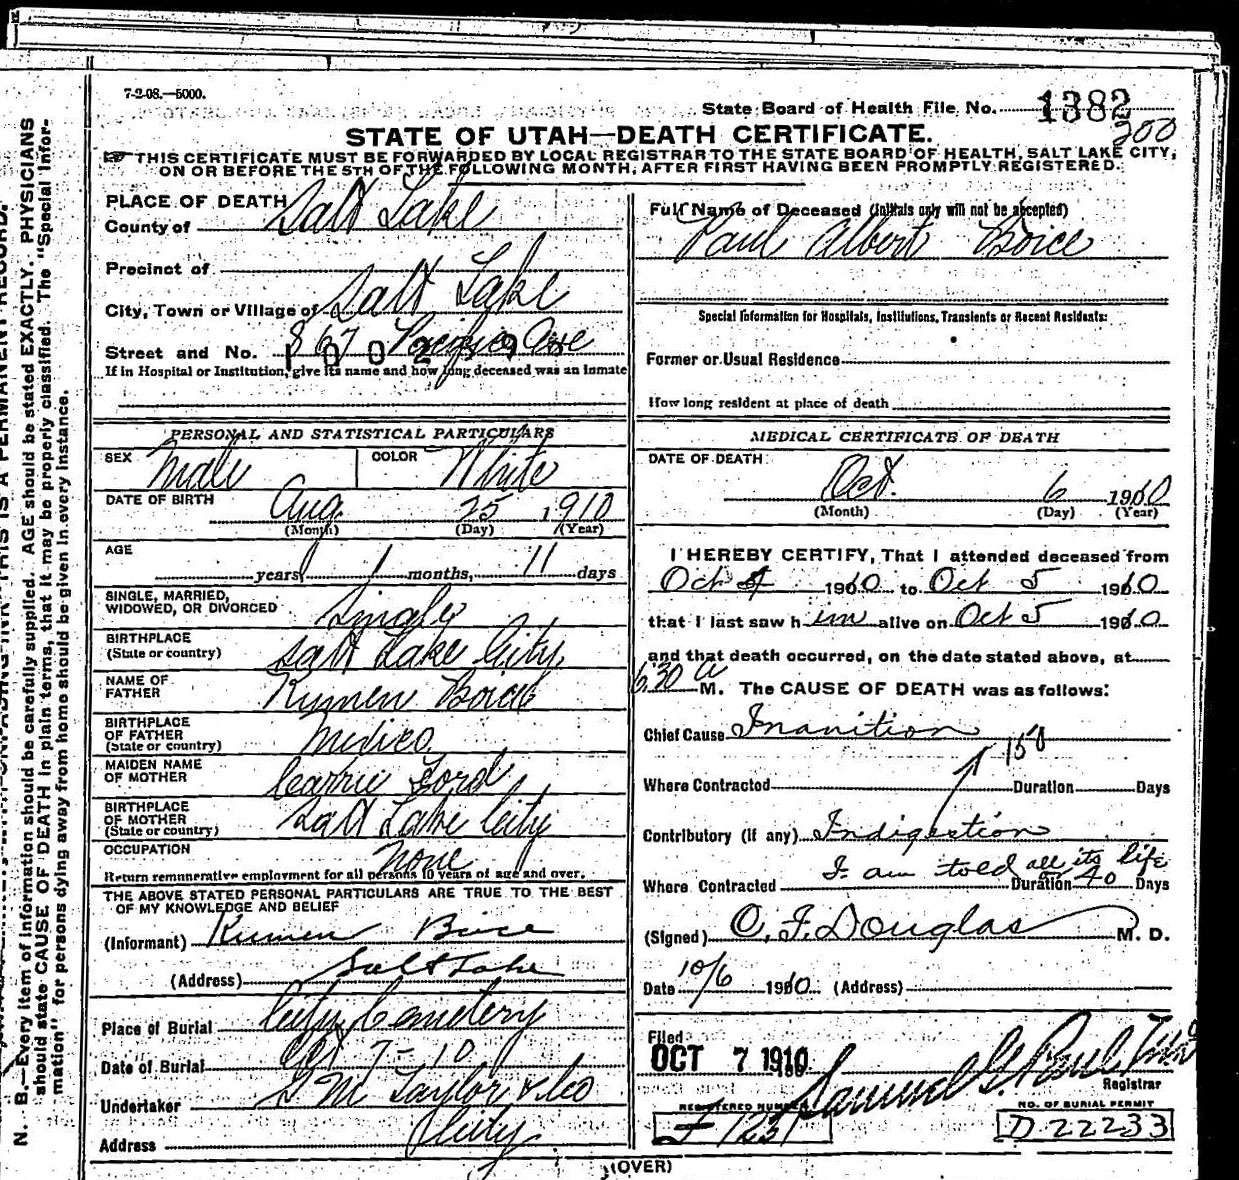 7-2-08.—5000.
State Board of Health File No. 1382
200
STATE OF UTAH—DEATH CERTIFICATE.
THIS CERTIFICATE MUST BE FORWARDED BY LOCAL REGISTRAR TO THE STATE BOARD OF HEALTH, SALT LAKE CITY,
ON OR BEFORE THE 5TH OF THE FOLLOWING MONTH, AFTER FIRST HAVING BEEN PROMPTLY REGISTERED.
PLACE OF DEATH
County of Salt Lake
Precinct of
City, Town or Village of Salt Lake
Street and No. 867 Pacific Ave
If in Hospital or Institution, give its name and how long deceased was an inmate
PERSONAL AND STATISTICAL PARTICULARS
SEX Male COLOR White
DATE OF BIRTH Aug. 25 1910
(Month) (Day) (Year)
AGE years 1 months, 11 days
SINGLE, MARRIED,
WIDOWED, OR DIVORCED Single
BIRTHPLACE
(State or country) Salt Lake City
NAME OF
FATHER Rumen Boice
BIRTHPLACE
OF FATHER
(State or country) Mexico
MAIDEN NAME
OF MOTHER Carrie Ford
BIRTHPLACE
OF MOTHER
(State or country) Salt Lake City
OCCUPATION None
Return remunerative employment for all persons 10 years of age and over.
THE ABOVE STATED PERSONAL PARTICULARS ARE TRUE TO THE BEST
OF MY KNOWLEDGE AND BELIEF
(Informant) Rumen Boice
(Address) Salt Lake
Place of Burial City Cemetery
Date of Burial Oct 7-10
Undertaker S M Taylor & Co
Address City
Full Name of Deceased (Initials only will not be accepted)
Paul Albert Boice
Special Information for Hospitals, Institutions, Transients or Recent Residents:
Former or Usual Residence
How long resident at place of death
MEDICAL CERTIFICATE OF DEATH
DATE OF DEATH:
Oct. 6 1910
(Month) (Day) (Year)
I HEREBY CERTIFY, That I attended deceased from
Oct 4 1910 to Oct 5 1910
that I last saw him alive on Oct 5 1910
and that death occurred, on the date stated above, at
6:30 A M. The CAUSE OF DEATH was as follows:
Chief Cause Inanition
150
Where Contracted Duration Days
Contributory (if any) Indigestion
I am told all its life
Where Contracted Duration or 40 Days
(Signed) C. F. Douglas M. D.
Date 10/6 1910 (Address)
Filed
OCT 7 1910
Samuel G. Paul
Registrar
REGISTERED NUMBER
NO. OF BURIAL PERMIT
D 22233
(OVER)
N. B.—Every item of information should be carefully supplied. AGE should be stated EXACTLY. PHYSICIANS
should state CAUSE OF DEATH in plain terms, that it may be properly classified. The "Special Infor-
mation" for persons dying away from home should be given in every instance.